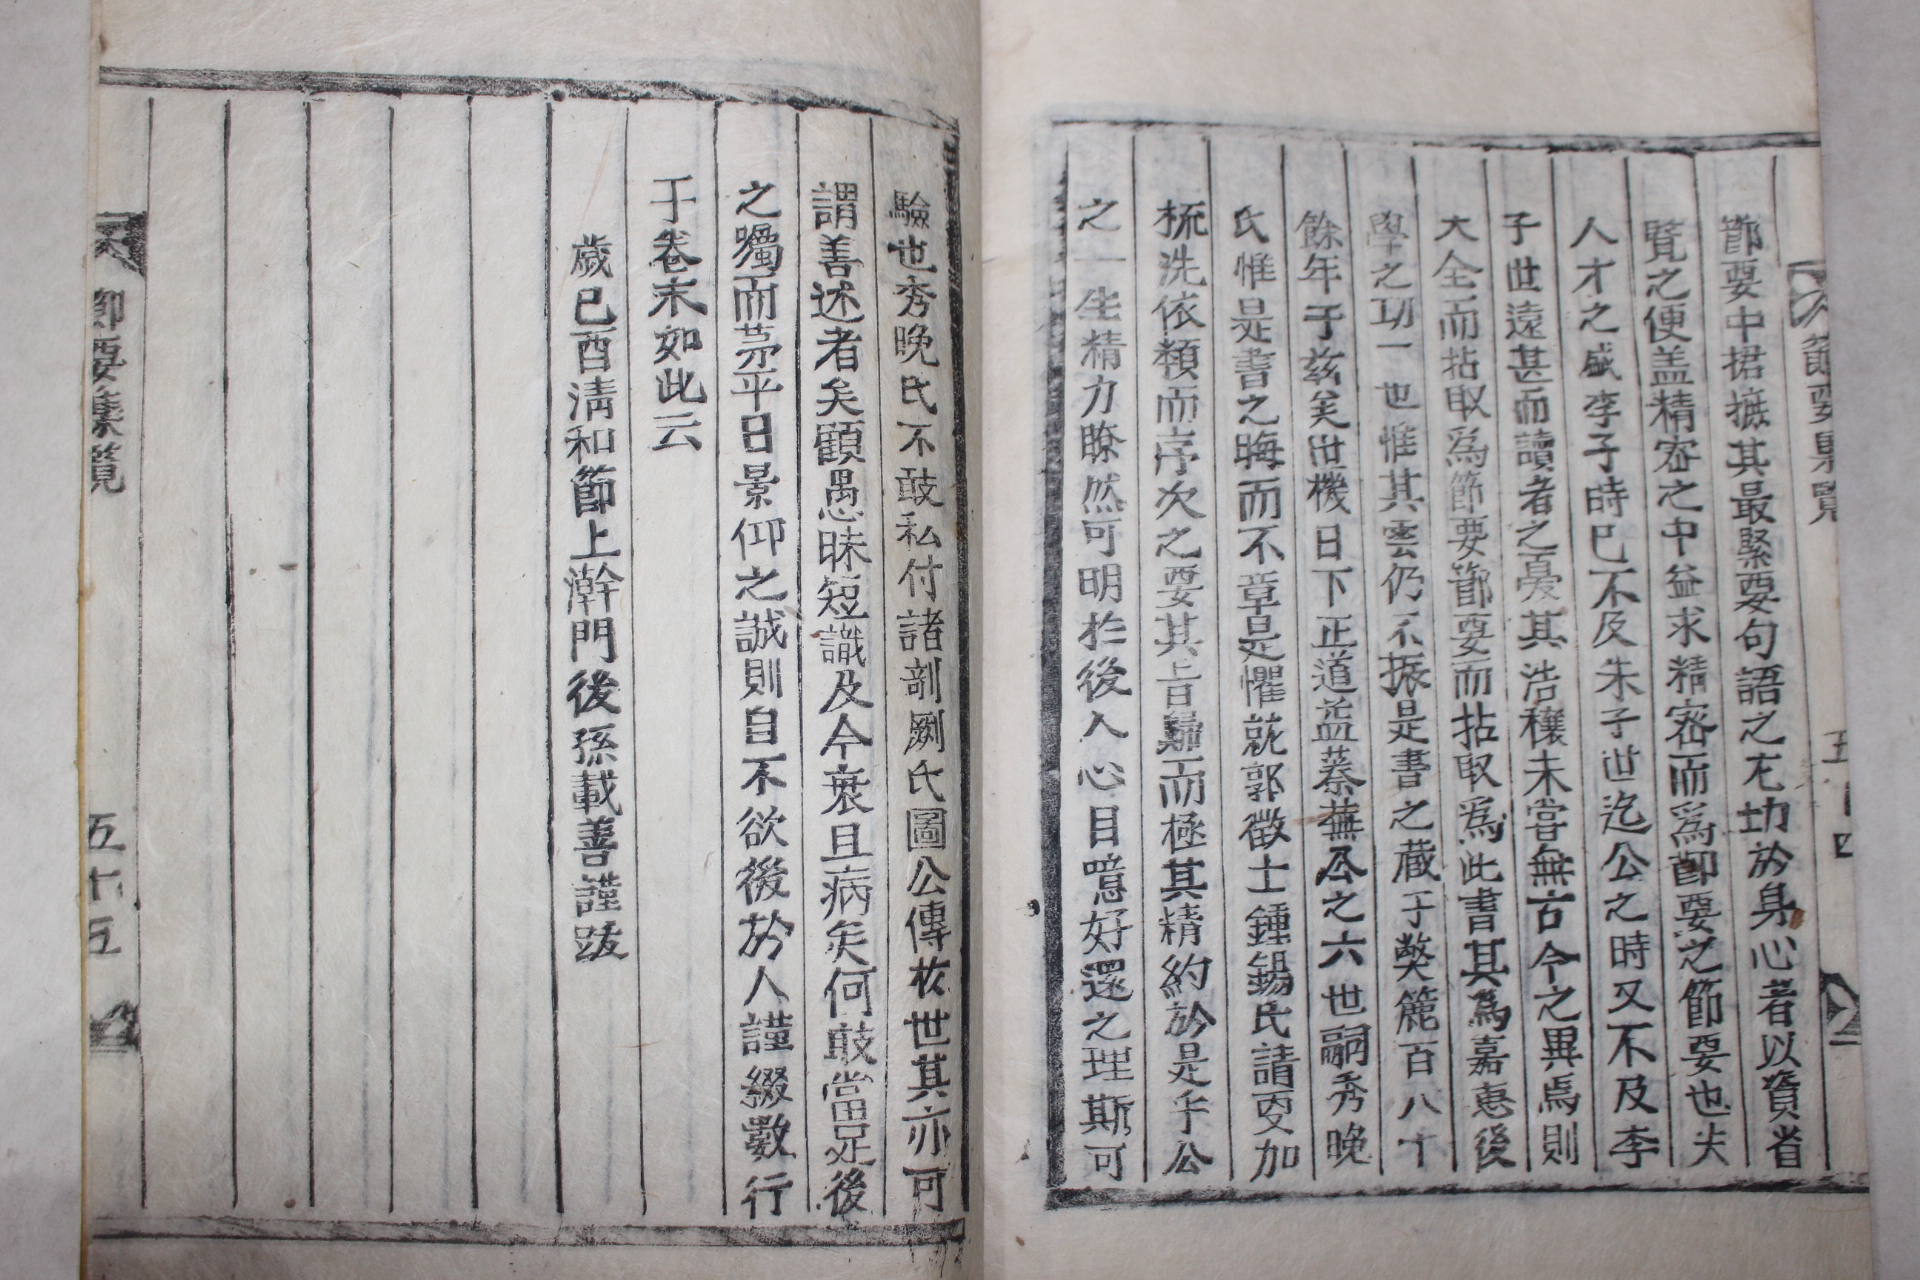 節要中捃摭其最緊要句語之尤切於身心者以資省
覽之便盖精密之中益求精密而爲節要之節要也夫
人才之盛李子時已不及朱子世迄公之時又不及李
子世遠甚而讀者之憂其浩穰未嘗無古今之異焉則
大全而拈取爲節要節要而拈取爲此書其爲嘉惠後
學之功一也惟其雲仍不振是書之蔵于獘簏百八十
餘年于玆矣世機日下正道益蓁蕪公之六世嗣秀晚
氏惟是書之晦而不章是懼就郭徵士鍾錫氏請叓加
梳洗依類而序次之要其旨歸而極其精約於是乎公
之一生精力瞭然可明於後人心目噫好還之理斯可
節要 覽
四
驗也秀晚氏不敢私付諸剞劂氏圖公傳於世其亦可
謂善述者矣顧愚昧短識及今衰且病矣何敢當足後
之囑而茅平日景仰之誠則自不欲後於人謹綴數行
于卷末如此云
歲己酉淸和節上澣門後孫載善謹跋
節要 覽
五十五